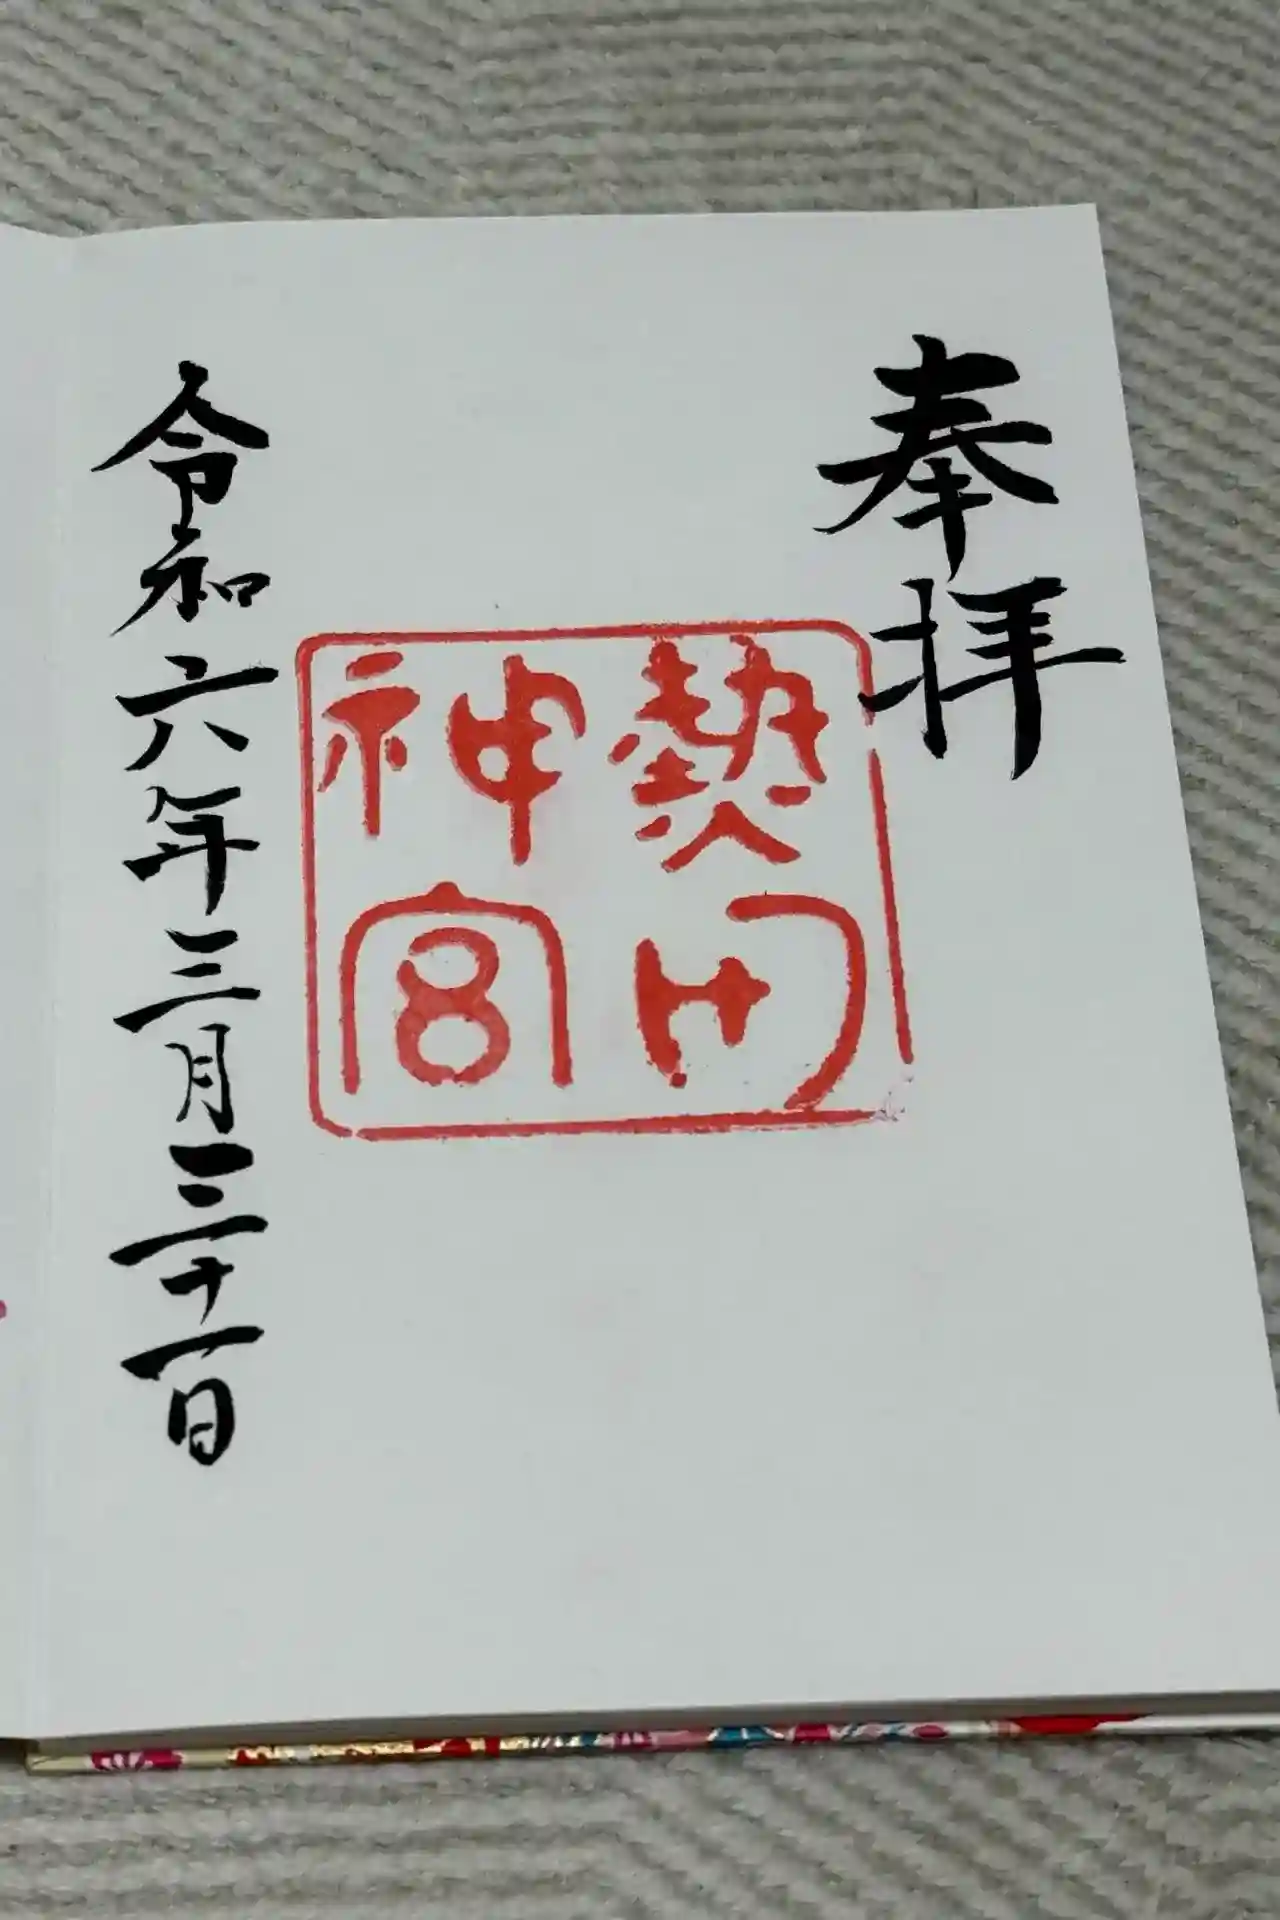 奉拝
熱田
神宮
令和六年三月三十一日